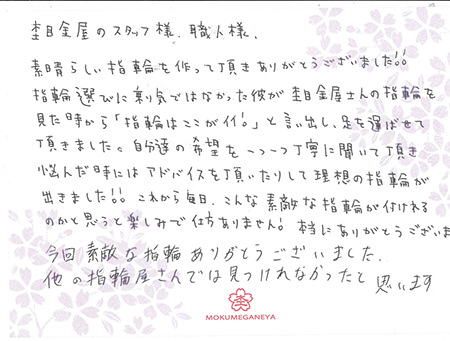 杢目金屋のスタッフ様、職人様、
素晴らしい指輪を作って頂きありがとうございました!!
指輪選びに乗り気ではなかった彼が杢目金屋さんの指輪を
見た時から「指輪はここがイイ!」と言い出し、足を運ばせて
頂きました。自分達の希望を一つ一つ丁寧に聞いて頂き
悩んだ時にはアドバイスを頂いたりして理想の指輪が
出きました!! これから毎日、こんな素敵な指輪が付けれる
のかと思うと楽しみで仕方ありません! 本当にありがとうございま
今回素敵な指輪ありがとうございました。
他の指輪屋さんでは見つけれなかったと思います
MOKUMEGANEYA